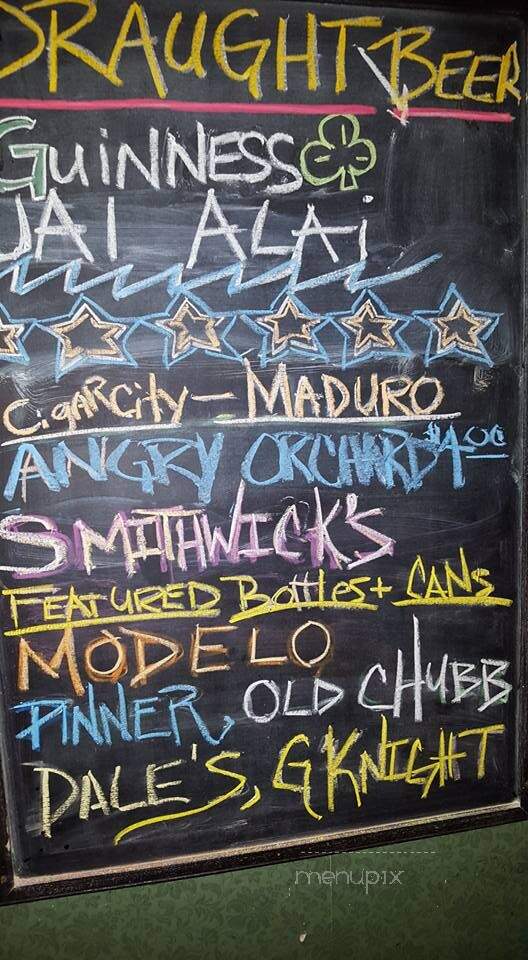 DRAUGHT BEER
GUINNESS
JAI ALAi
CigaRCity - MADURO
ANGRY ORCHARD $4.00
SMITHWICK'S
FEATURED Bottles + CANs
MODELO
PINNER, OLD CHUBB
DALE'S, G'KNIGHT
menupix